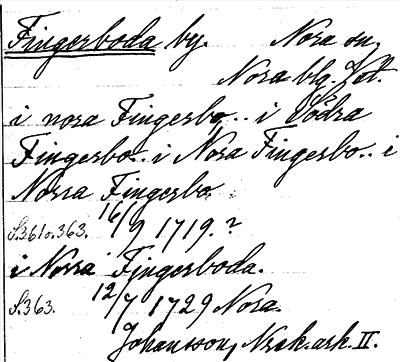 Fingerboda by. Nora sn,
Nora blg. Vst.
i nora Fingerbo.. i Södra
Fingerbo.. i Nora Fingerbo.. i
Norra Fingerbo.
S.361 o. 363. 16/9 1719.?
i Norra Fingerboda.
S.363. 12/7 1729 Nora.
Johansson, Nrak.ark. II.